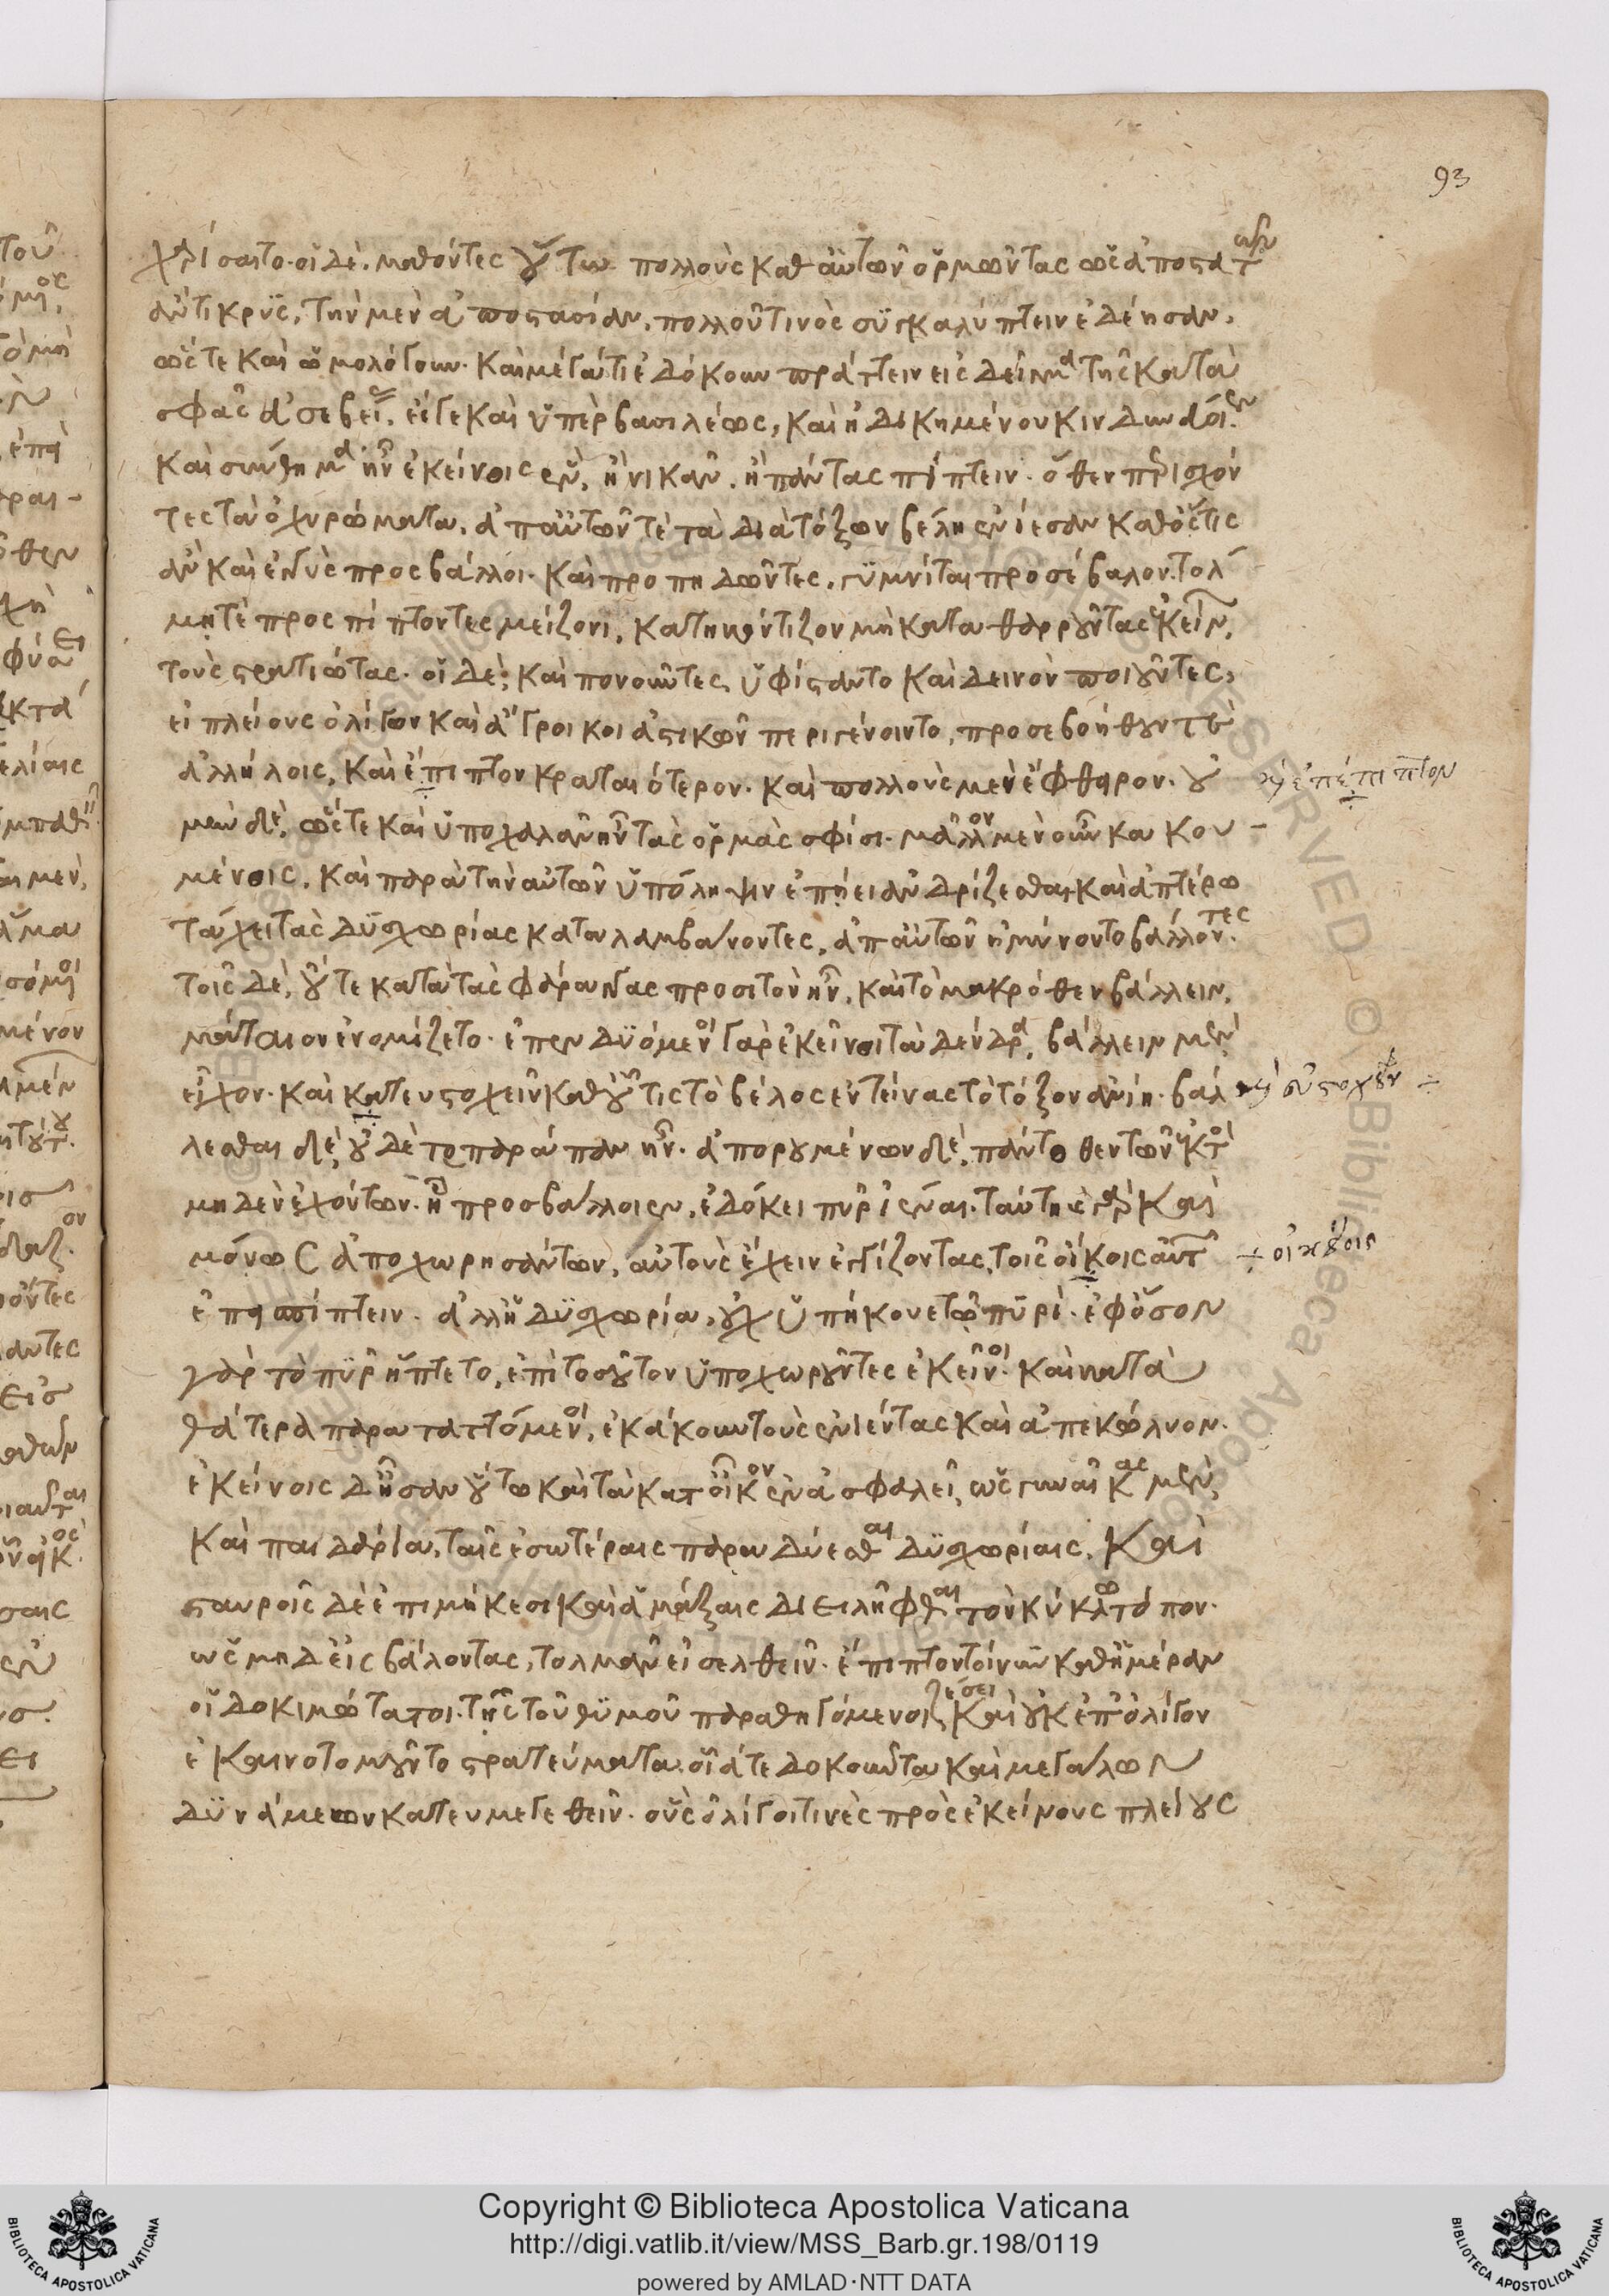 93
χρίσαιτο. οἱ δὲ, μαθόντες οὕτω πολλοὺς καθ' αὑτῶν ὁρμῶντας ὡς ἀποστατῶν
ἀντικρὺς, τὴν μὲν ἀποστασίαν, πολλοῦ τινὸς συγκαλύπτειν ἐδέησαν,
ὥστε καὶ ὡμολόγουν. καὶ μέγα τι ἐδόκουν πράττειν εἰς δεῖγμα τῆς κατὰ
σφᾶς εὐσεβείας, εἴγε καὶ ὑπὲρ βασιλέως, καὶ ἠδικημένου κινδυνεύοιεν.
καὶ σύνθημα ἦν ἐκείνοις ἓν, ἢ νικᾶν, ἢ πάντας πίπτειν. ὅθεν περισχόν
τες τὰ ὀχυρώματα, ἀπ' αὐτῶν τὲ τὰ διὰ τόξων βέλη ἐνίεσαν καθ' ὅστις
ἂν καὶ ἐγγὺς προσβάλλοι. καὶ προπηδῶντες, γυμνῆται προσέβαλον. τόλ
μῃ τὲ προσπίπτοντες μείζονι, κατηκόντιζον μὴ καταθαρροῦντας ἐκείν
τοὺς στρατιώτας. οἱ δὲ, καὶ πονοῦντες ὑφίσταντο καὶ δεινὸν ποιοῦντες,
εἰ πλείους ὀλίγων καὶ ἄγροικοι ἀστικῶν περιγένοιντο, προσεβοήθουν τὲ
ἀλλήλοις, καὶ ἔπιπτον κραταιότερον. καὶ πολλοὺς μὲν ἔφθειρον. οὐ
ἐπέπιπτον
μὴν δὲ, ὥστε καὶ ὑποχαλᾶν ἦν τὰς ὁρμὰς σφίσι. μᾶλλον μὲν οὖν κακου-
μένοις, καὶ παρὰ τὴν αὐτῶν ὑπόληψιν ἐπῄει ἀνδρίζεσθαι. καὶ ἀπτέρῳ
τάχει τὰς δυσχωρίας καταλαμβάνοντες, ἀπ' αὐτῶν ἠμύνοντο βάλλοντες.
τοῖς δὲ, οὔτε κατὰ τὰς φάραγγας προσιτὸν ἦν, καὶ τὸ μακρόθεν βάλλειν,
μάταιον ἐνομίζετο. ἐπενδυόμενοι γὰρ ἐκεῖνοι τὰ δένδρα, βάλλειν μὲν
εἶχον. καὶ κατευστοχεῖν καθ' οὗ τις τὸ βέλος ἐντείνας τὸ τόξον ἀνίῃ. βάλ
εὐστοχεῖν
λεσθαι δὲ, οὐδὲ τοπαράπαν ἦν. ἀπορουμένων δὲ, πάντοθεν τῶν ἐκτὸς
μηδὲν ἐχόντων. ᾗ προσβάλλοιεν, ἐδόκει πῦρ ἱέναι. ταύτῃ γὰρ καὶ
μόνως ἀποχωρησάντων, αὐτοὺς ἔχειν ἐγγίζοντας, τοῖς οἴκοις αὐτ
οἰκείοις
ἐπεισπίπτειν. ἀλλ' ἡ δυσχωρία, οὐχ ὑπήκουε τῷ πυρί. ἐφ' ὅσον
γὰρ τὸ πῦρ ἥπτετο, ἐπὶ τοσοῦτον ὑποχωροῦντες ἐκεῖνοι. καὶ κατὰ
θάτερα παραταττόμενοι, ἐκάκουν τοὺς ἐνιέντας καὶ ἀπεκώλυον.
ἐκείνοις δ' ἦσαν οὕτω καὶ τὰ κατ' οἶκον ἐν ἀσφαλεῖ, ὡς γυναῖκας μὲν
καὶ παιδάρια, ταῖς ἐσωτέραις παραδύεσθαι δυσχωρίαις. καὶ
σταυροῖς δὲ ἐπιμήκεσι καὶ ἁμάξαις διειλῆφθαι τὸν κύκλῳ τόπον.
ὡς μηδ' εἰσβάλοντας, τολμᾶν εἰσελθεῖν. ἔπιπτον τοίνυν καθ' ἡμέραν
οἱ δοκιμώτατοι. τῇ τοῦ θυμοῦ παραθηγόμενοι ζέσει καὶ οὐκ ἐπ' ὀλίγον
ἐκαινοτομοῦντο στρατεύματα, οἷά τε δοκοῦντα καὶ μεγάλων
δυνάμεων κατευμεγεθεῖν. οὓς ὀλίγοι τινὲς πρὸς ἐκείνους πλείους
Copyright © Biblioteca Apostolica Vaticana
http://digi.vatlib.it/view/MSS_Barb.gr.198/0119
powered by AMLAD·NTT DATA
BIBLIOTECA APOSTOLICA VATICANA
BIBLIOTECA APOSTOLICA VATICANA